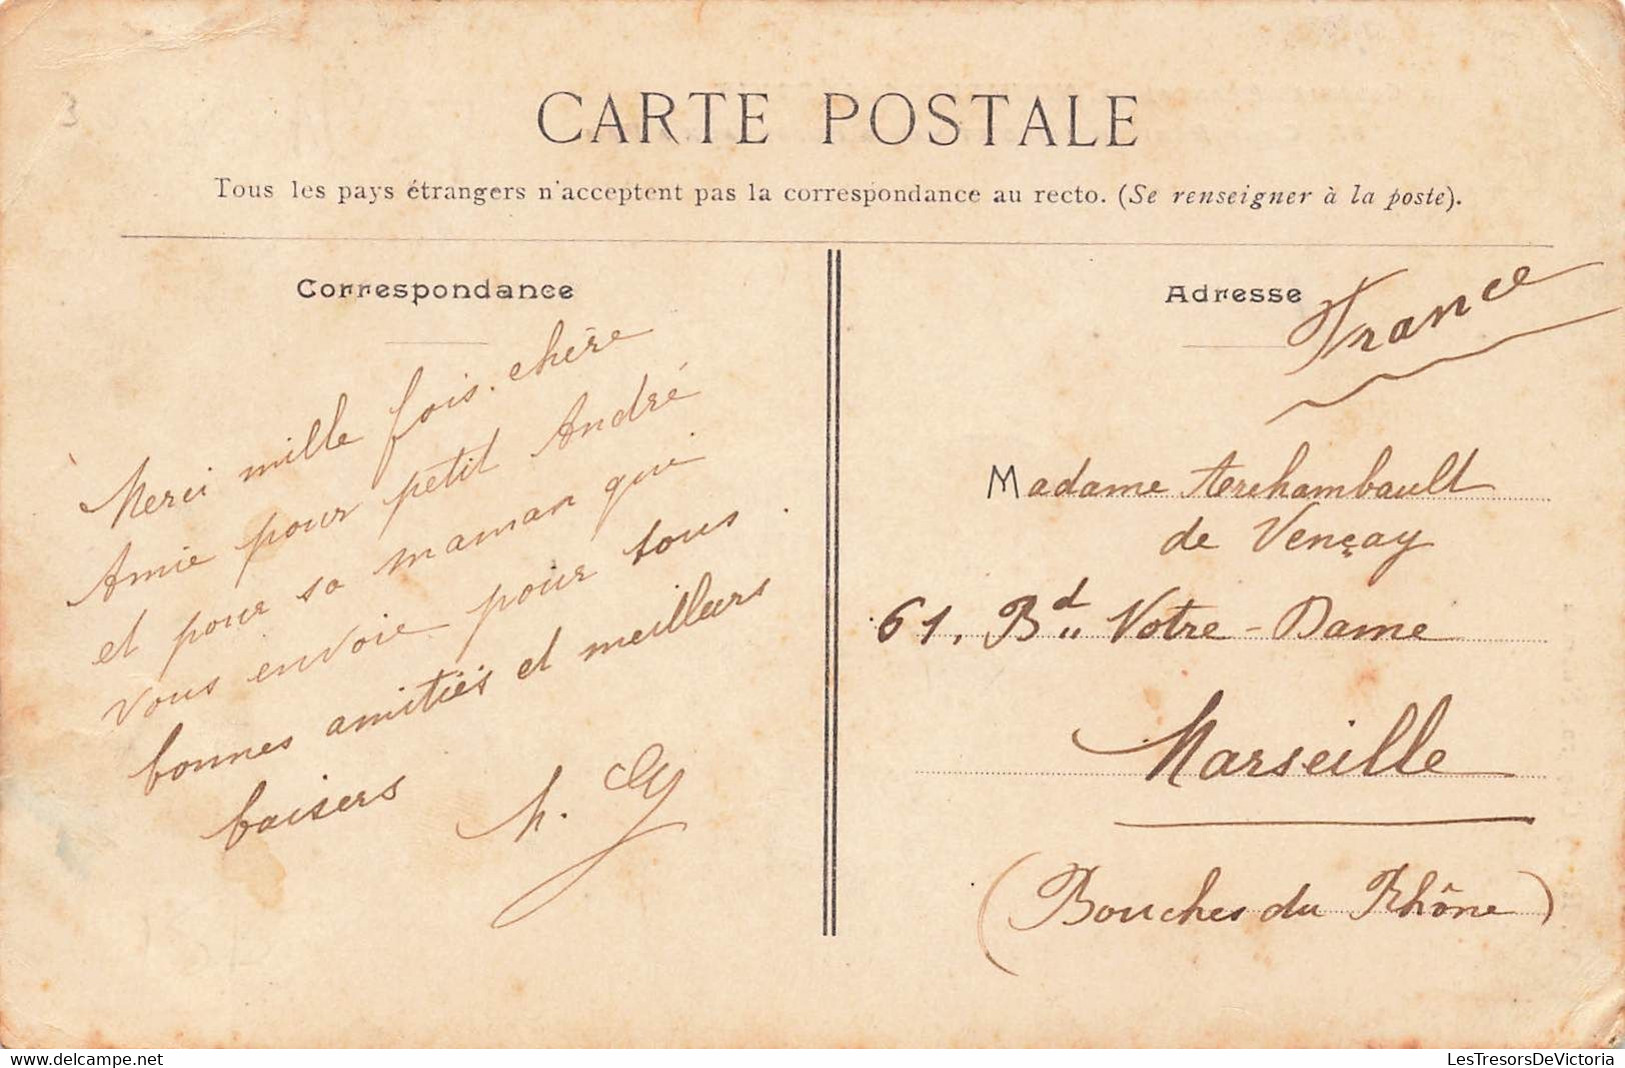 3
CARTE POSTALE
Tous les pays étrangers n'acceptent pas la correspondance au recto. (Se renseigner à la poste).
Correspondance
Merci mille fois. chère
Amie pour petit André
et pour sa maman qui
vous envoie pour tous
bonnes amitiés et meilleurs
baisers
Adresse
France
Madame Archambault
de Vençay
61, Bd Notre-Dame
Marseille
(Bouches du Rhône)
LesTresorsDeVictoria